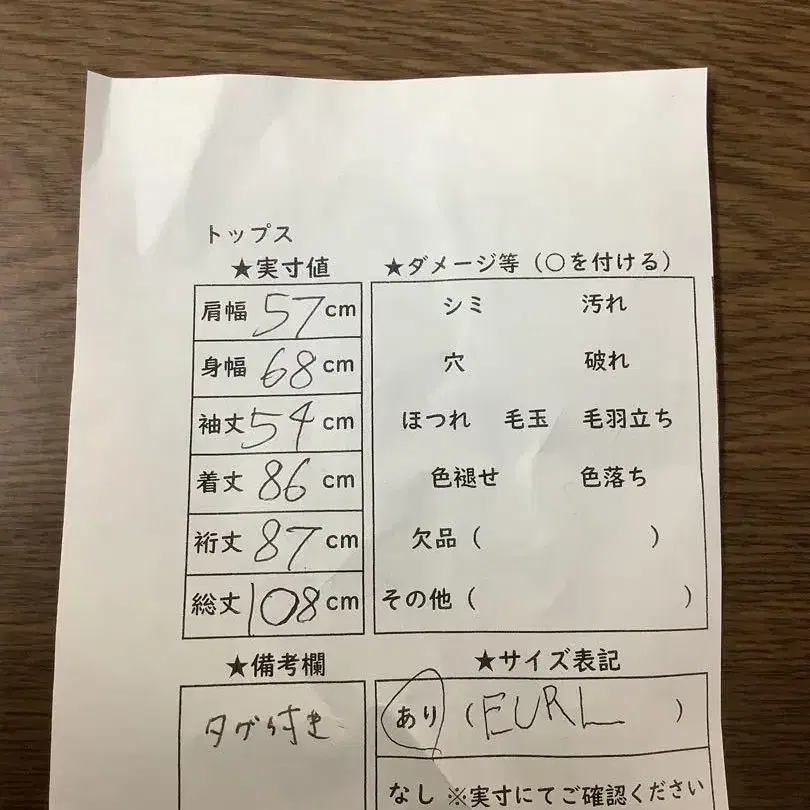 トップス
★実寸値
肩幅 57cm
身幅 68cm
袖丈 54cm
着丈 86cm
裄丈 87cm
総丈 108cm
★ダメージ等（○を付ける）
シミ 汚れ
穴 破れ
ほつれ 毛玉 毛羽立ち
色褪せ 色落ち
欠品（ ）
その他（ ）
★備考欄
タグ付き
★サイズ表記
あり（EURL）
なし ※実寸にてご確認ください